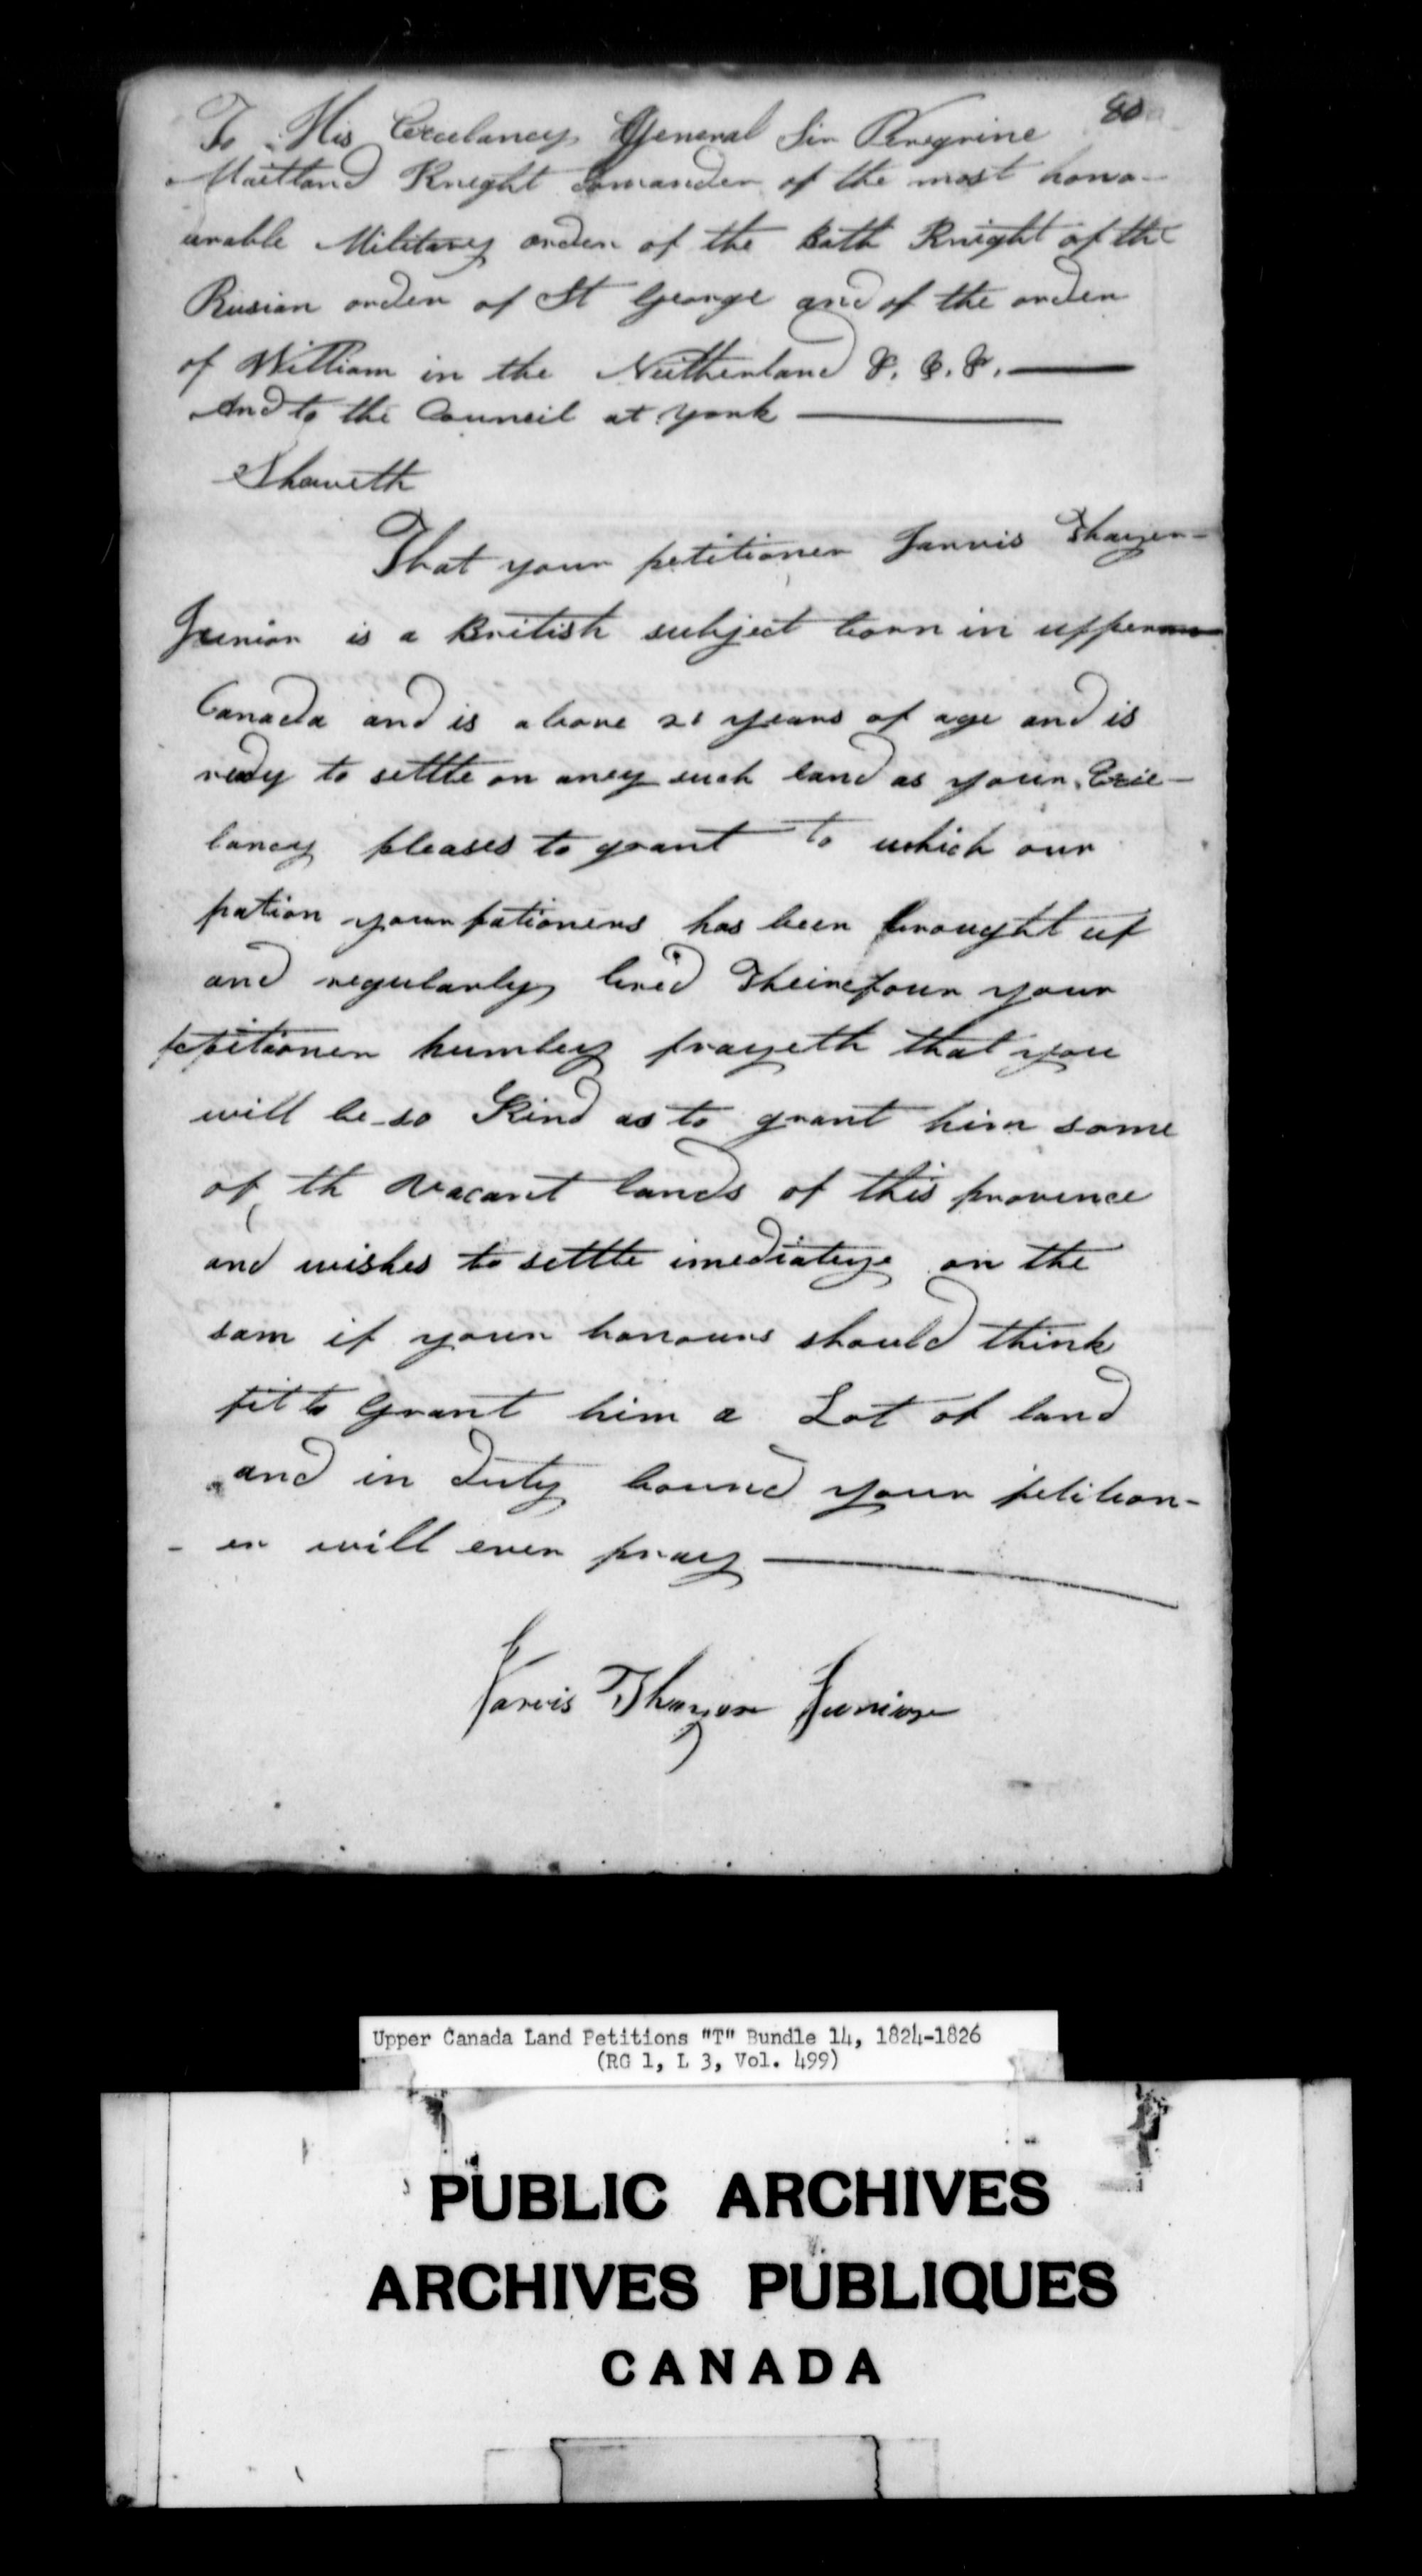 80
To His Excelancy General Sir Peregrine
Maitland Knight Comander of the most hono-
urable Military order of the Bath Knight of the
Rusian order of St George and of the order
of William in the Neitherland &. &. &.
And to the Council at York
Shaweth
That your petitioner Jarvis Thayer
Junior is a British subject born in upper
Canada and is above 21 years of age and is
redy to settle on aney such land as your Exie-
lancy pleases to grant to which our
pation your pationers has been brought up
and regularly bred Theirefour your
petitioner humbley prayeth that you
will be so Kind as to grant him some
of th vacant lands of this provence
and wishes to settle imediatlye on the
sam if your honours should think
fit to Grant him a Lot of land
and in duty bound your petition-
- er will ever pray
Jarvis Thayer Junior
Upper Canada Land Petitions "T" Bundle 14, 1824-1826
(RG 1, L 3, Vol. 499)
PUBLIC ARCHIVES
ARCHIVES PUBLIQUES
CANADA